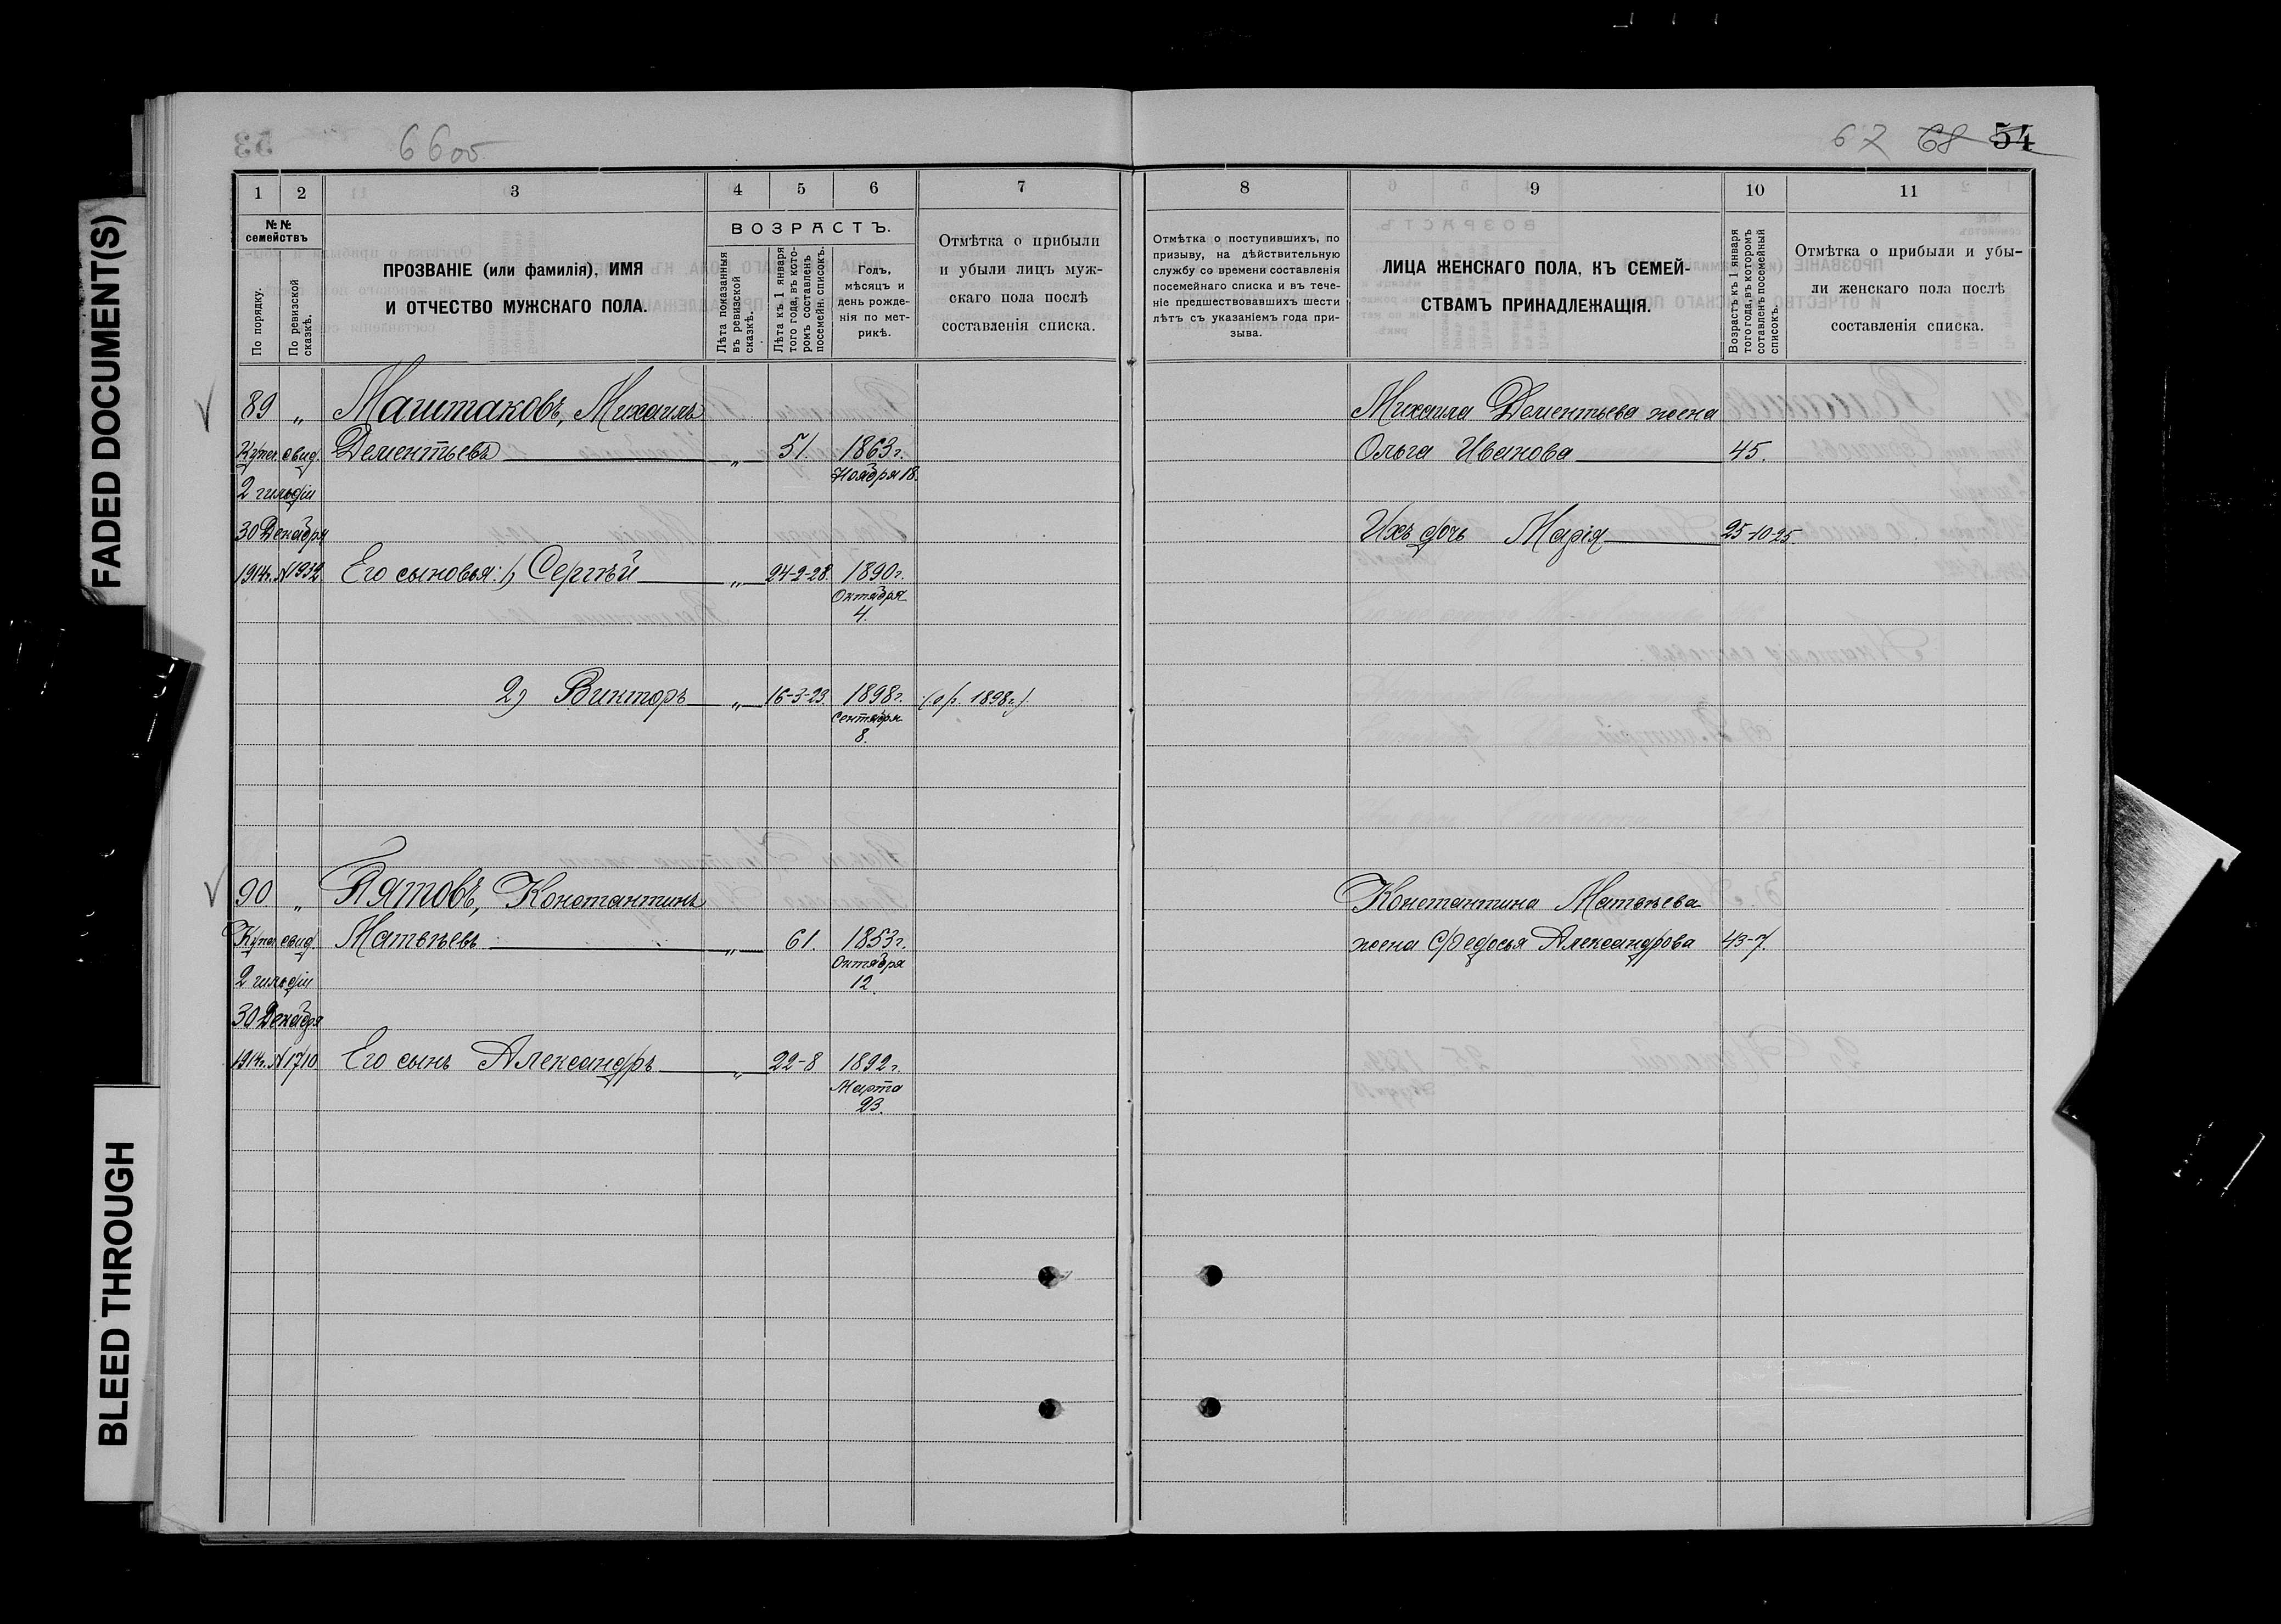 FADED DOCUMENT(S)
BLEED THROUGH
53
66 об
67 68 54
1 2 3 4 5 6 7
№№ семействъ
По порядку.
По ревизской сказкѣ.
ПРОЗВАНІЕ (или фамилія), ИМЯ
И ОТЧЕСТВО МУЖСКАГО ПОЛА.
ВОЗРАСТЪ.
Лѣта показанныя въ ревизской сказкѣ.
Лѣта къ 1 января того года, въ кото-ромъ составленъ посемейн. списокъ.
Годъ,
мѣсяцъ и
день рожде-
нія по мет-
рикѣ.
Отмѣтка о прибыли
и убыли лицъ муж-
скаго пола послѣ
составленія списка.
8 9 10 11
Отмѣтка о поступившихъ, по
призыву, на дѣйствительную
службу со времени составленія
посемейнаго списка и въ тече-
ніе предшествовавшихъ шести
лѣтъ съ указаніемъ года при-
зыва.
ЛИЦА ЖЕНСКАГО ПОЛА, КЪ СЕМЕЙ-
СТВАМЪ ПРИНАДЛЕЖАЩІЯ.
Возрастъ къ 1 января
того года, въ которомъ
сотавленъ посемейный
списокъ.
Отмѣтка о прибыли и убы-
ли женскаго пола послѣ
составленія списка.
89 „ Маштаковъ, Михаилъ
Купеч. свид. Дементьевъ „ 51. 1863 г.
Ноября 18.
2 гильдіи
30 Декабря
1914 г. № 1932 Его сыновья: 1) Сергѣй „ 24-2-28. 1890 г.
Октября
4.
2) Викторъ „ 16-3-23. 1898 г. (о р. 1898 г.).
Сентября
8.
90 „ Пятовъ, Константинъ
Купеч. свид. Матвѣевъ „ 61. 1853 г.
Октября
2 гильдіи 12.
30 Декабря
1914 г. № 1710 Его сынъ Александръ „ 22-8 1892 г.
Марта
23.
Михаила Дементьева жена
Ольга Иванова 45.
Ихъ дочь Марія 25-10-25.
Константина Матвѣева
жена Федосья Александрова 43-7.